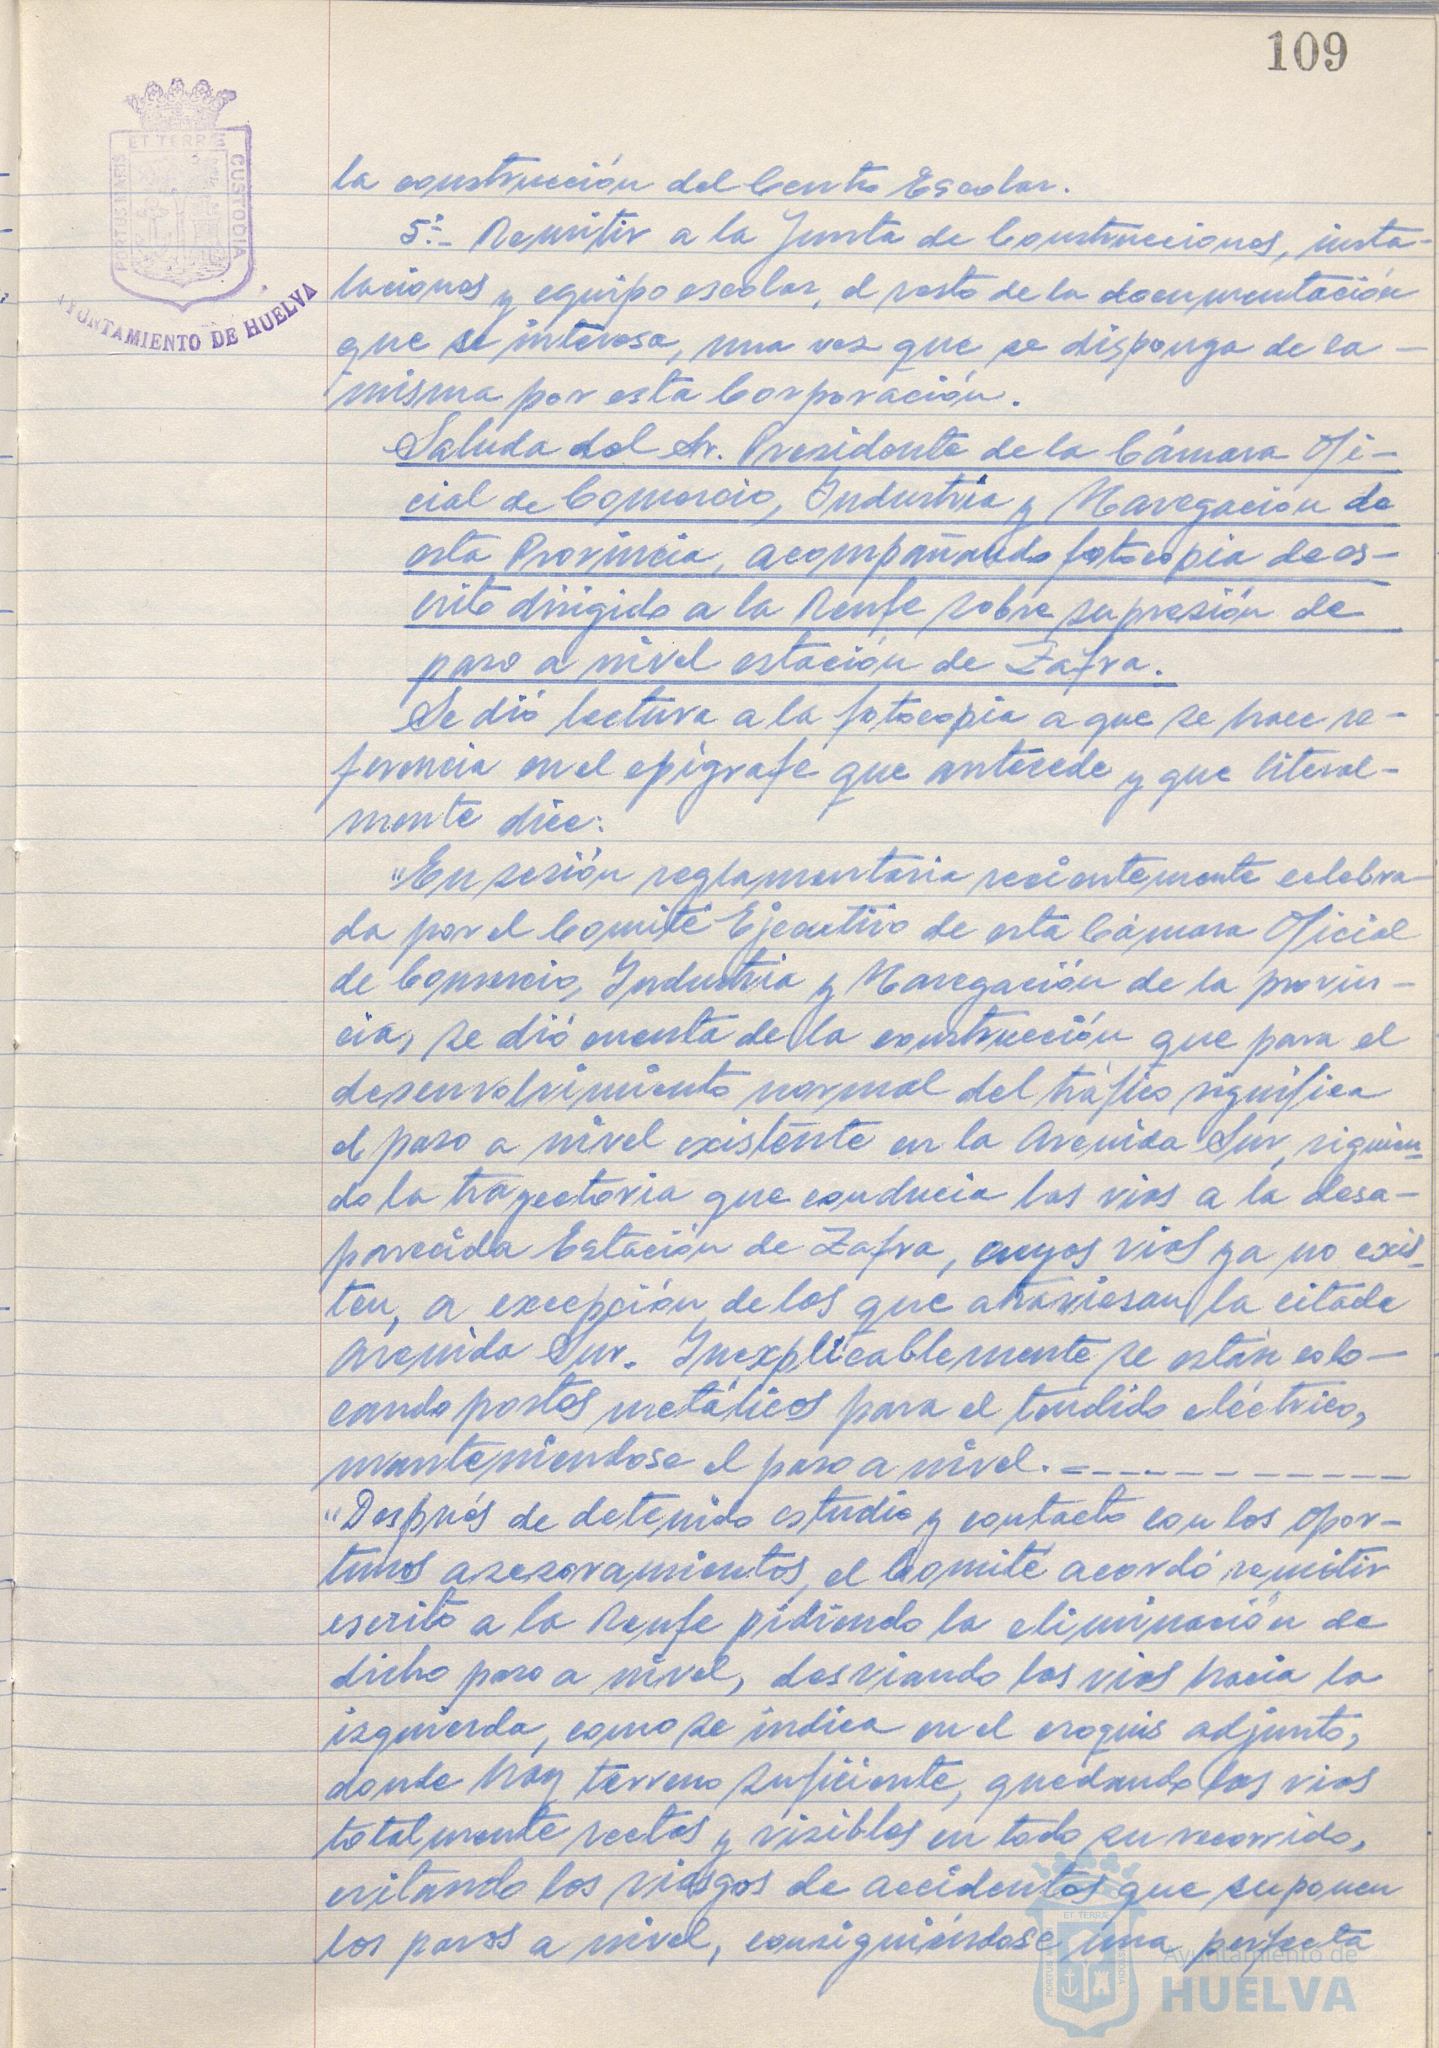 109
ET TERRÆ
PORTUS MARIS
CUSTODIA
AYUNTAMIENTO DE HUELVA
la construcción del Centro Escolar.
5º.- Remitir a la Junta de Construcciones, insta-
laciones y equipo escolar, el resto de la documentación
que se interesa, una vez que se disponga de la -
misma por esta Corporación.
Saluda del Sr. Presidente de la Cámara Ofi-
cial de Comercio, Industria y Navegación de
esta Provincia, acompañando fotocopia de es-
crito dirigido a la Renfe sobre supresión de
paso a nivel estación de Zafra.
Se dió lectura a la fotocopia a que se hace re-
ferencia en el epígrafe que antecede y que literal-
mente dice:
"En sesión reglamentaria recientemente celebra-
da por el Comité Ejecutivo de esta Cámara Oficial
de Comercio, Industria y Navegación de la provin-
cia, se dió cuenta de la construcción que para el
desenvolvimiento normal del tráfico significa
el paso a nivel existente en la Avenida Sur, siguien-
do la trayectoria que conducia las vias a la desa-
parecida Estación de Zafra, cuyas vias ya no exis-
ten, a excepción de las que atraviesan la citada
Avenida Sur. Inexplicablemente se están colo-
cando postes metálicos para el tendido eléctrico,
manteniendose el paso a nivel. - - - - - - - - - -
"Después de detenido estudio y contacto con los opor-
tunos asesoramientos, el Comité acordó remitir
escrito a la Renfe pidiendo la eliminación de
dicho paso a nivel, desviando las vias hacia la
izquierda, como se indica en el croquis adjunto,
donde hay terreno suficiente, quedando las vias
totalmente rectas y visibles en todo su recorrido,
evitando los riesgos de accidentes que suponen
los pasos a nivel, consiguiéndose una perfecta
ET TERRÆ
PORTUS MARIS
CUSTODIA
Ayuntamiento de
HUELVA